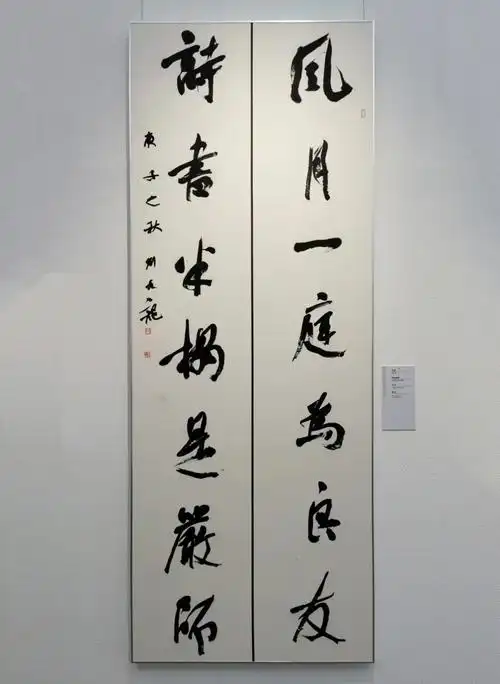 風月一庭為良友
詩書半榻是嚴師
庚子之秋
龍